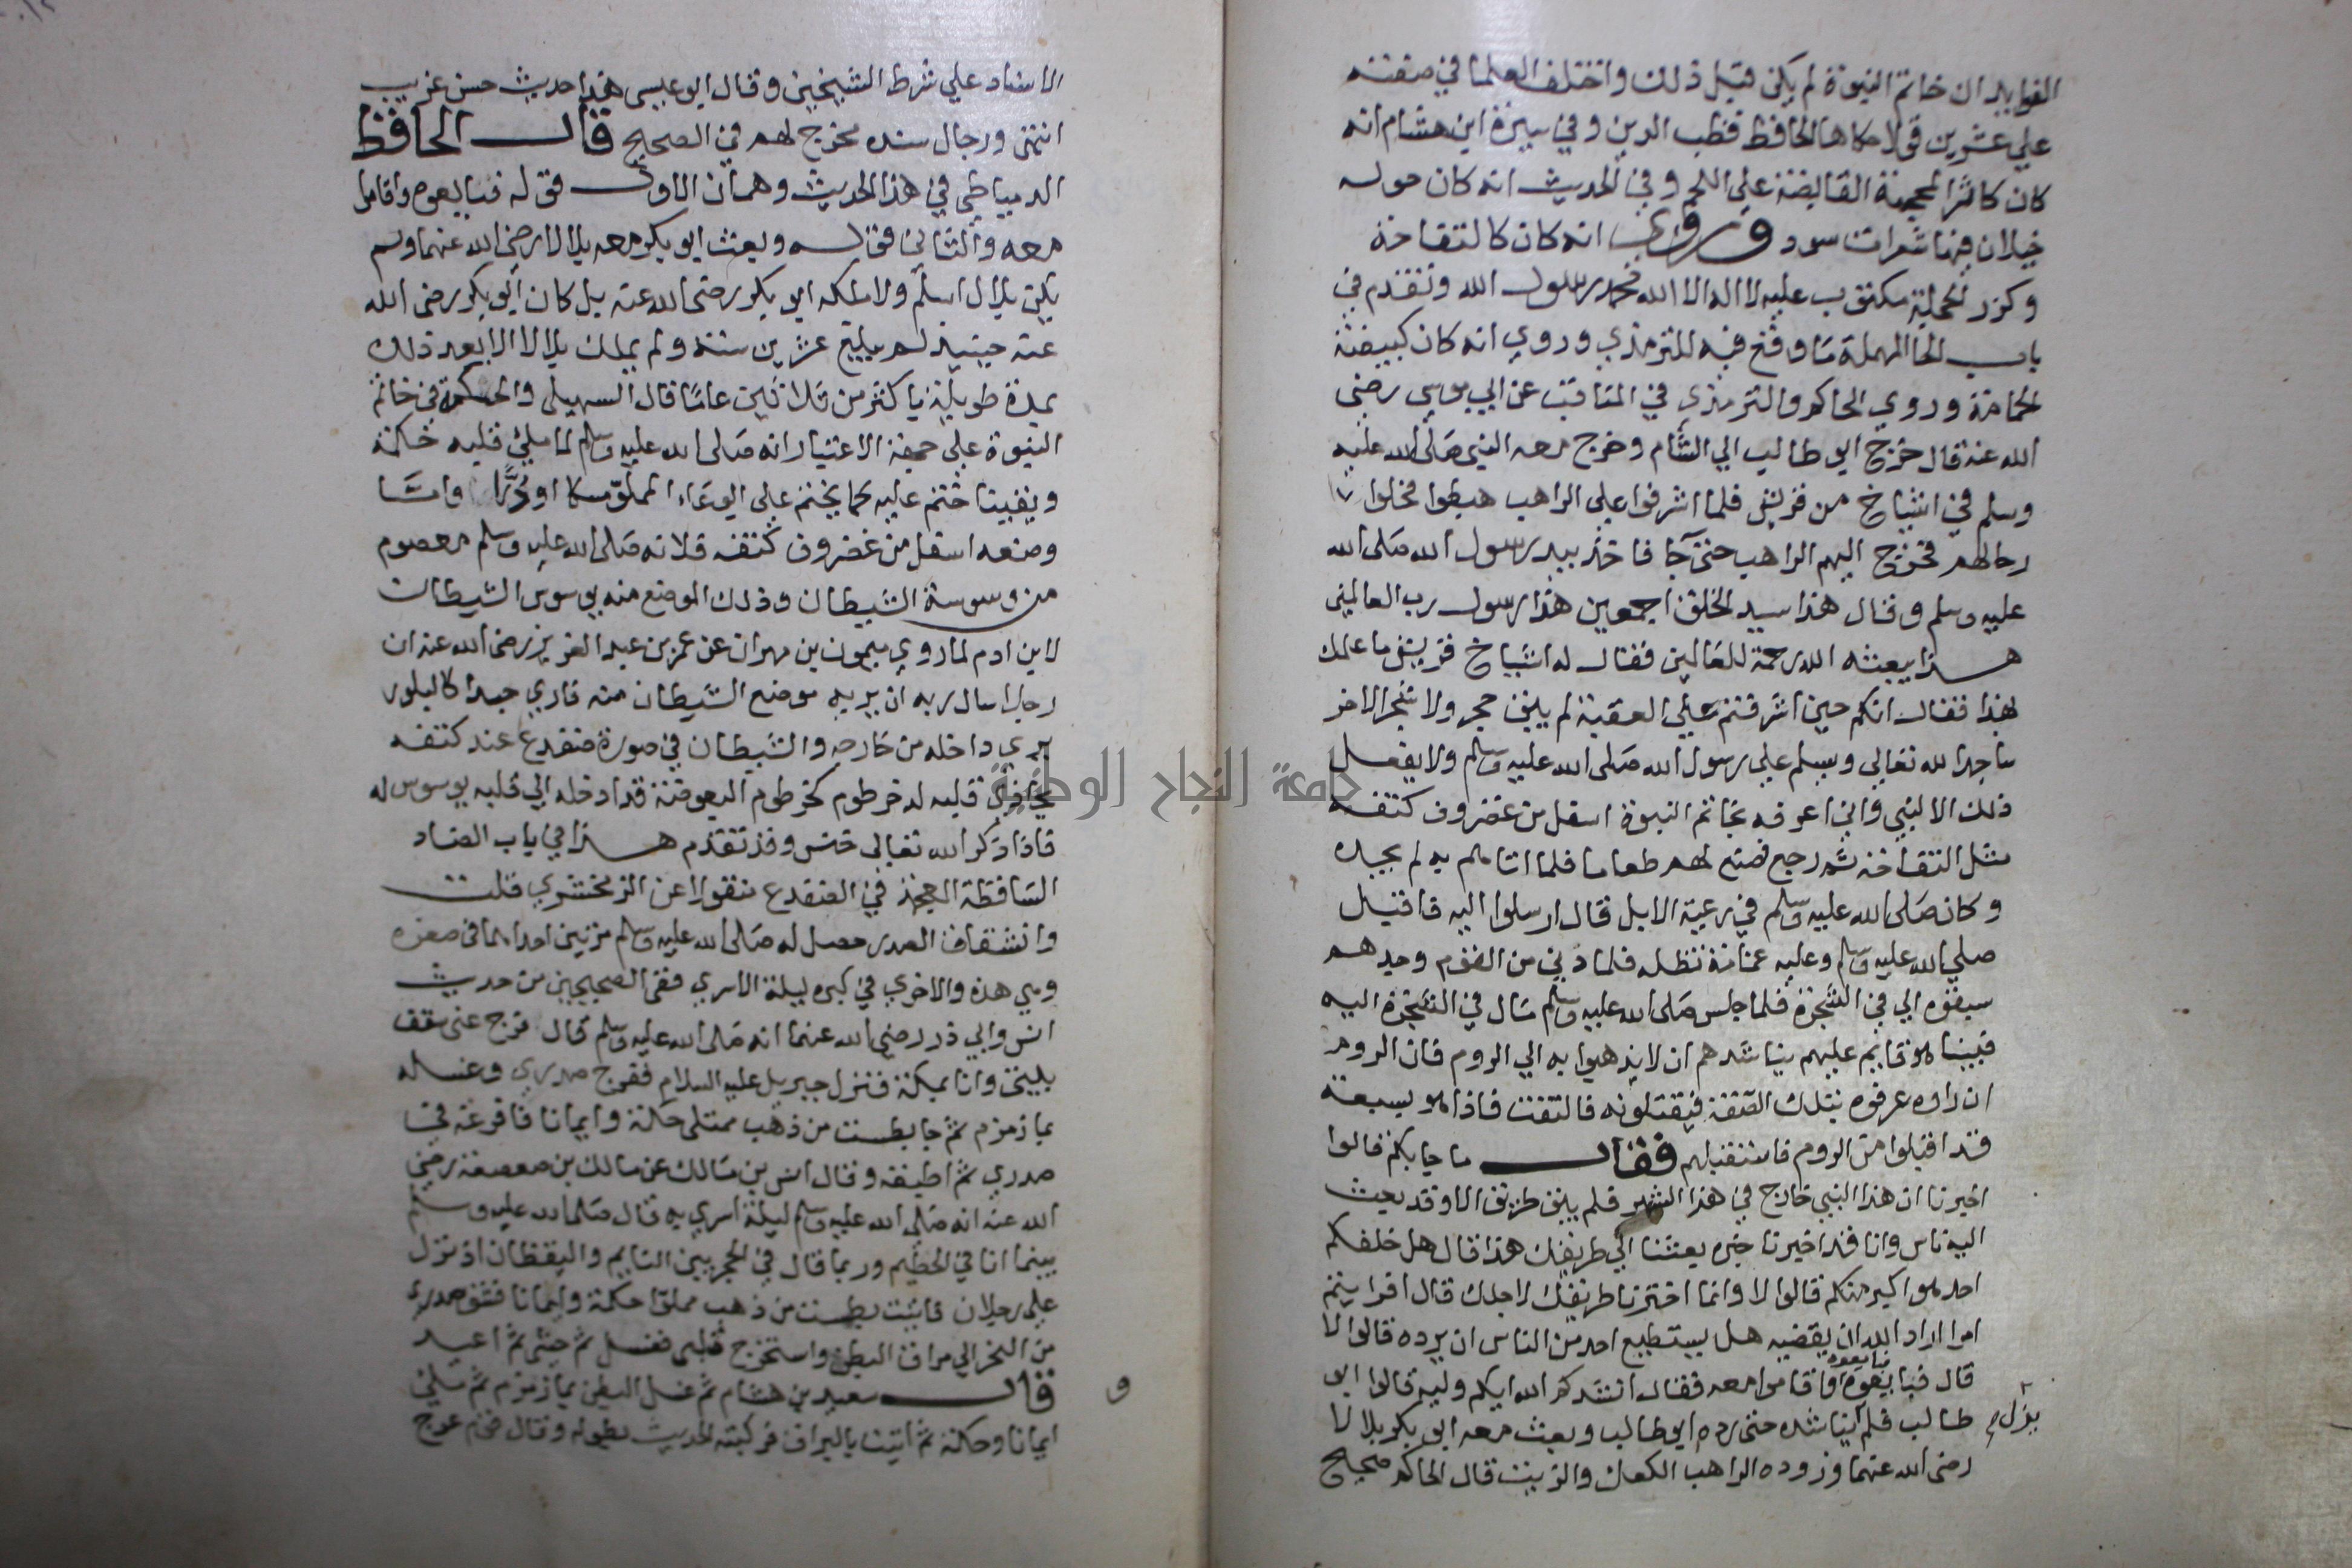 الفوايد ان خاتم النبوة لم يكن قبل ذلك واختلف العلما في صفته
علي عشرين قولا حكاها الحافظ قطب الدين وفي سيرة ابن هشام انه
كان كاثر المحجمة القابضة علي اللحم وفي الحديث انه كان حوله
خيلان فيها شعرات سود وروي انه كان كالتفاحة
وكزر الحجلة مكتوب عليه لا اله الا الله محمد رسول الله وتقدم في
باب الحا المهملة ما وقع فيه للترمذي وروي انه كان كبيضة
الحمامة وروي الحاكم والترمذي في المناقب عن ابي موسي رضي
الله عنه قال خرج ابو طالب الي الشام وخرج معه النبي صلى الله عليه
وسلم في اشياخ من قريش فلما اشرفوا علي الراهب هبطوا فحلوا
رحالهم فخرج اليهم الراهب حتى جا فاخذ بيد رسول الله صلى الله
عليه وسلم وقال هذا سيد الخلق اجمعين هذا رسول رب العالمين
هذا يبعثه الله رحمة للعالمين فقال له اشياخ قريش ما علمك
بهذا فقال انكم حين اشرفتم علي العقبة لم يبق حجر ولا شجر الا خر
ساجدا لله تعالي ويسلم علي رسول الله صلى الله عليه وسلم ولا يفعل
ذلك الا لنبي واني اعرفه بخاتم النبوة اسفل من غضروف كتفه
مثل التفاحة ثم رجع فصنع لهم طعاما فلما اتاهم به لم يجده
وكان صلى الله عليه وسلم في رعية الابل قال ارسلوا اليه فاقبل
صلي الله عليه وسلم وعليه غمامة تظله فلما دني من القوم وجدهم
سبقوه الي في الشجرة فلما جلس صلى الله عليه وسلم مال في الشجرة اليه
فبينا هو قايم عليهم يناشدهم ان لا يذهبوا به الي الروم فان الروم
ان راوه عرفوه بتلك الصفة فيقتلونه فالتفت فاذا هو بسبعة
قد اقبلوا من الروم فاستقبلهم فقال ما جا بكم قالوا
اخبرنا ان هذا النبي خارج في هذا الشهر فلم يبق طريق الا وقد بعث
اليه ناس وانا قد اخبرنا خبره بعثنا الي طريقك هذا قال هل خلفكم
احد هو اكبر منكم قالوا لا وانما اخترنا طريقك لاجلك قال افرايتم
امرا اراد الله ان يقضيه هل يستطيع احد من الناس ان يرده قالوا لا
قال فبايعوه واقاموا معه فقال انشدكم الله ايكم وليه قالوا ابو
فبايعوه
طالب فلم يناشده حتى رده ابو طالب وبعث معه ابو بكر بلالا
رضي الله عنهما وزوده الراهب الكعك والزيت قال الحاكم صحيح
الاسناد علي شرط الشيخين وقال ابو عيسي هذا حديث حسن غريب
انتهى ورجال سنده مخرج لهم في الصحيح قال الحافظ
الدمياطي في هذا الحديث وهمان الاول قوله فبايعوه واقاموا
معه والثاني قوله وبعث ابو بكر معه بلالا رضي الله عنهما ولم
يكن بلال اسلم ولا ملكه ابو بكر رضي الله عنه بل كان ابو بكر رضي الله
عنه حينيذ لم يبلغ عشرين سنة ولم يملك بلالا الا بعد ذلك
بمدة طويلة باكثر من ثلاثين عاما قال السهيلي والحكمة في خاتم
النبوة علي جهة الاعتبار انه صلى الله عليه وسلم لما ملئ قلبه حكمة
ويقينا ختم عليه كما يختم على الوعاء المملو مسكا او درا واما
وضعه اسفل من غضروف كتفه فلانه صلى الله عليه وسلم معصوم
من وسوسة الشيطان وذلك الموضع منه يوسوس الشيطان
لابن ادم لما روي ميمون بن مهران عن عمر بن عبد العزيز رضي الله عنه ان
رجلا سال ربه ان يريه موضع الشيطان منه فاري جسدا كالبلور
يري داخله من خارجه والشيطان في صورة ضفدع عند كتفه
يحاذي قلبه له خرطوم كخرطوم البعوضة قد ادخله الي قلبه يوسوس له
فاذا ذكر الله تعالى خنس وقد تقدم هذا في باب الضاد
الساقطة المعجمة في الضفدع منقولا عن الزمخشري قلت
وانشقاق الصدر حصل له صلى الله عليه وسلم مرتين احداهما في صغره
وهي هذه والاخري في كبره ليلة الاسري ففي الصحيحين من حديث
انس وابي ذر رضي الله عنهما انه صلى الله عليه وسلم قال فرج عني سقف
بيتي وانا بمكة فنزل جبريل عليه السلام ففرج صدري وغسله
بما زمزم ثم جا بطست من ذهب ممتلى حكمة وايمانا فافرغه في
صدري ثم اطبقه وقال انس بن مالك عن مالك بن صعصعة رضي
الله عنه انه صلي الله عليه وسلم ليلة اسري به قال صلى الله عليه وسلم
بينما انا في الحطيم وربما قال في الحجر بين النايم واليقظان اذ نزل
علي رجلان فاتيت بطست من ذهب مملو حكمة وايمانا فشق صدري
من النحر الي مراق البطن واستخرج قلبي فغسل ثم حشي ثم اعيد
قال سعيد بن هشام ثم غسل البطن بما زمزم ثم ملئ
ايمانا وحكمة ثم اتيت بالبراق فركبته الحديث بطوله وقال ثم عرج
جامعة النجاح الوطنية